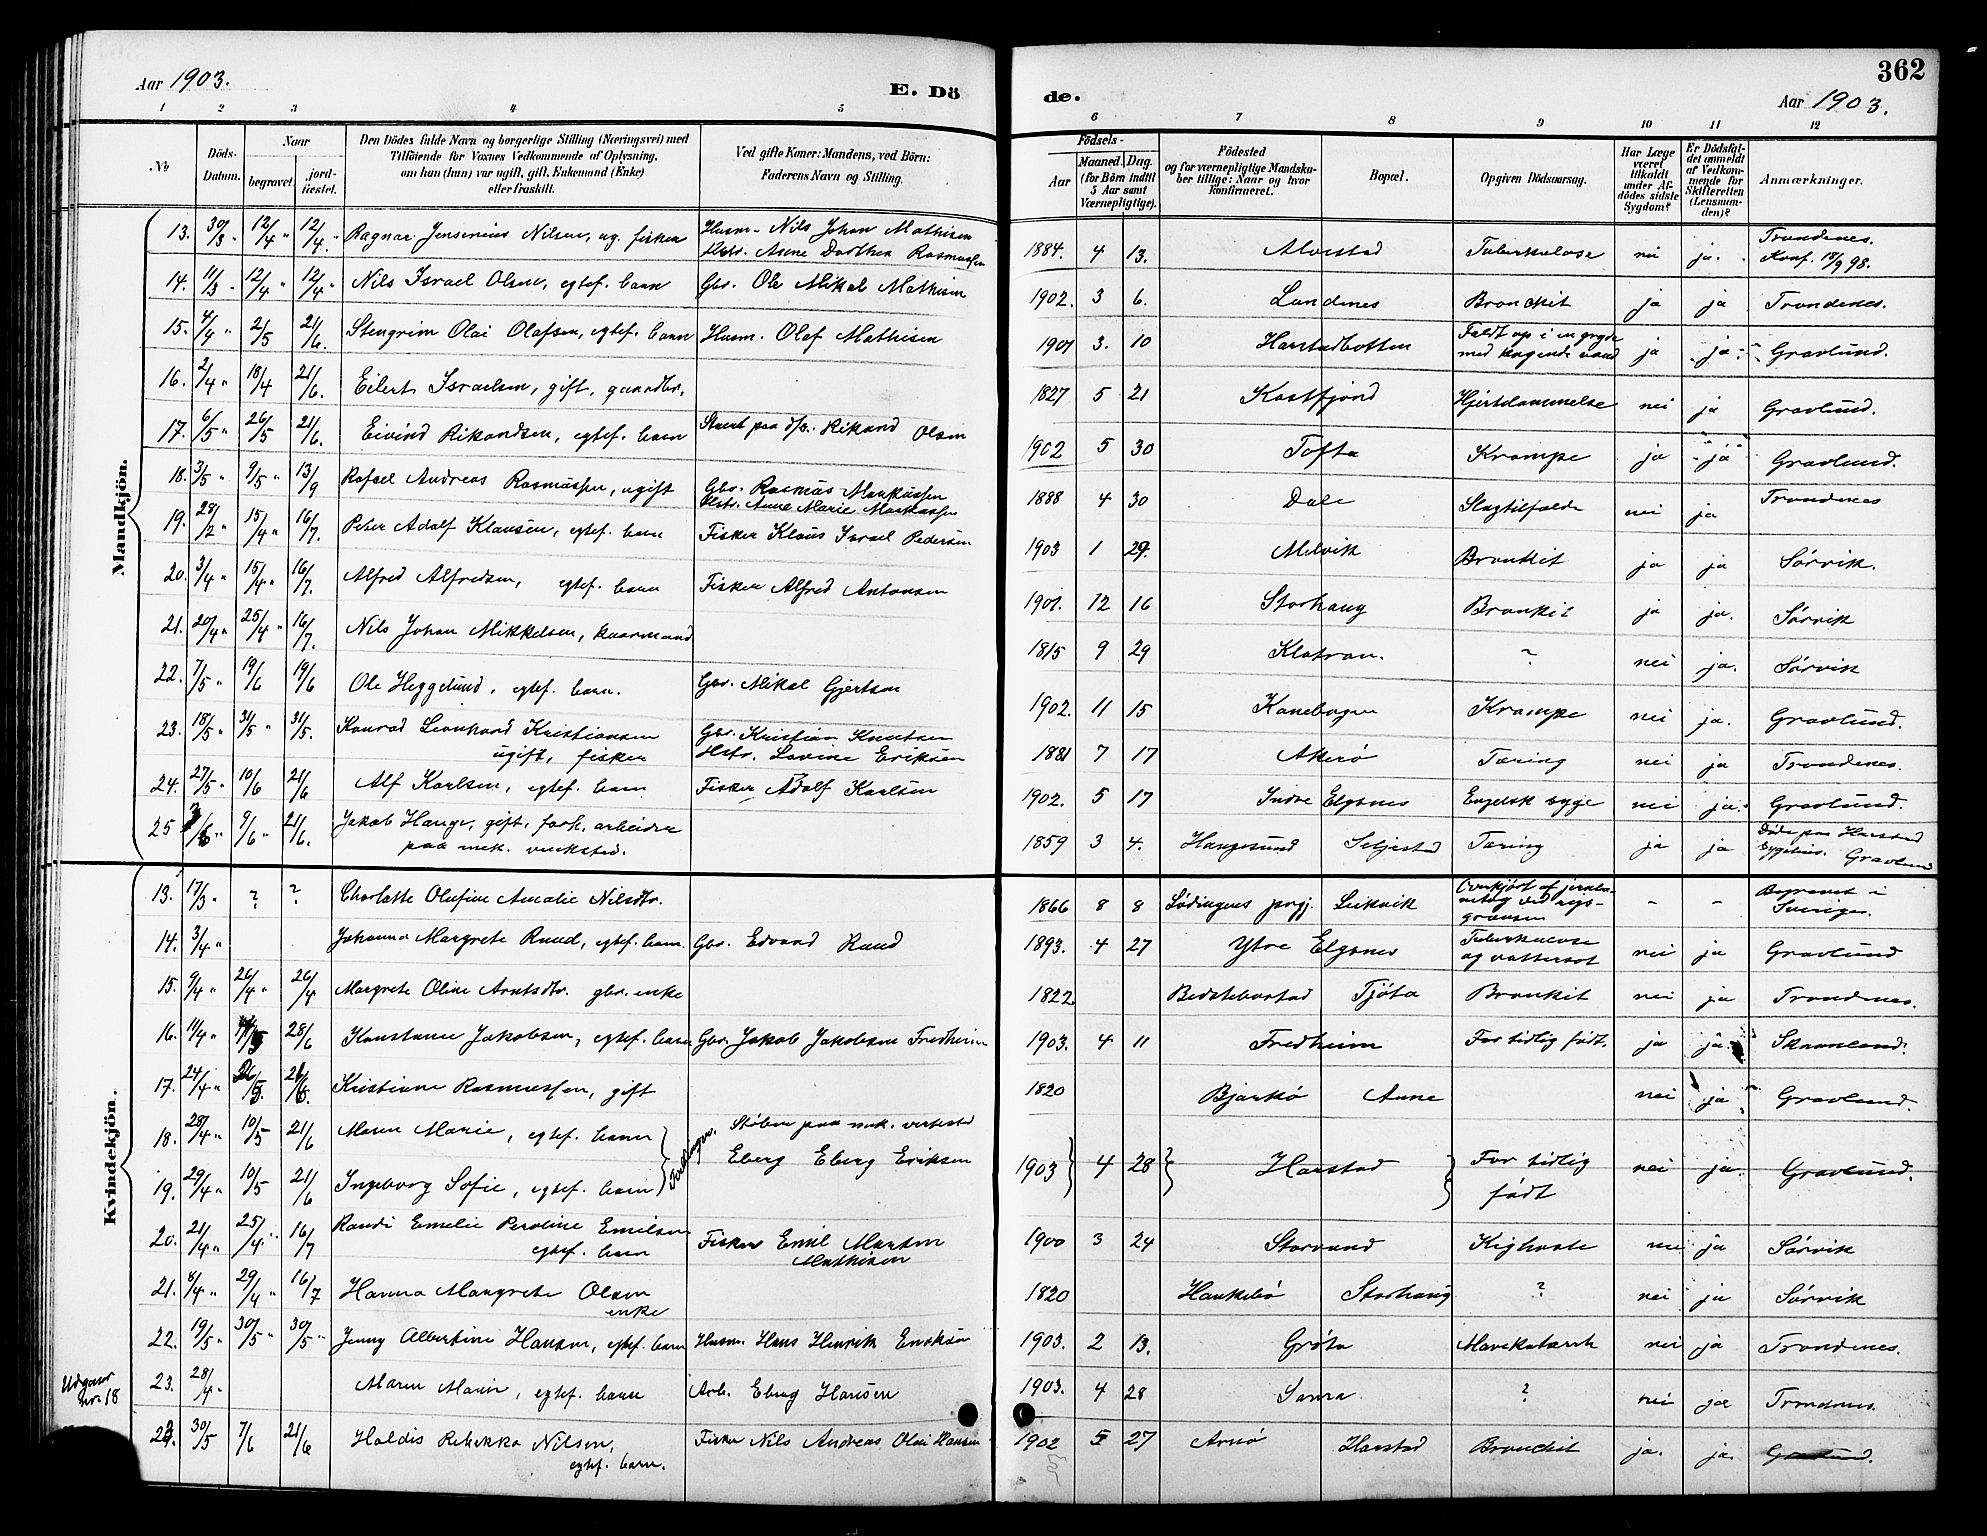 Aar 1903.
E. Dö
de.
362
Aar 1903.
1 2 3 4 5
6 7 8 9 10 11 12
No
Döds-
Datum.
Naar
begravet.
jord-
fæstet.
Den Dödes fulde Navn og borgerlige Stilling (Næringsvei) med
Tilföiende for Voxnes Vedkommende af Oplysning,
om han (hun) var ugift, gift, Enkemand (Enke)
eller fraskilt.
Ved gifte Koner: Mandens, ved Börn:
Faderens Navn og Stilling.
Födsels-
Aar
Maaned. Dag.
(for Börn indtil
5 Aar samt
Værnepligtige).
Födested
og for værnepligtige Mandska-
ber tillige: Naar og hvor
konfirmeret.
Bopæl.
Opgiven Dödsaarsag.
Har Læge
været
tilkaldt
under Af-
dödes sidste
Sygdom?
Er Dödsfal-
det anmeldt
af Vedkom-
mende for
Skifteretten
(Lensman-
den)?
Anmærkninger.
Mandkjön.
13. 30/3 " 12/4 " 12/4 " Ragnar Jensenius Nilsen, ug. fisker Husm. Nils Johan Mathisen
Hstr. Anne Dorthea Rasmussen 1884. 4 13. Alvestad Tuberkulose nei ja. Trondenes.
Konf. 18/9 98.
14. 11/3 " 12/4 " 12/4 " Nils Israel Olsen, egtef. barn Gbr. Ole Mikal Mathisen 1902. 3 6. Lundenes Bronchit ja ja Trondenes.
15. 4/4 " 2/5 21/6. Stengrim Olai Olafsen, egtef. barn Husm. Olaf Mathisen 1901 3. 10 Harstadbotten Faldt op i en gryde
med kogende vand ja ja Gravlund.
16. 2/4 " 18/4 21/6. Eilert Israelsen, gift, gaardbr. 1827 5 21 Kastfjord Hjertelammelse nei ja Gravlund.
17. 6/5 " 26/5 21/6. Eivind Rikardsen, egtef. barn Stuert paa d/s. Rikard Olsen 1902 5 30 Tofta Krampe ja ja Gravlund.
18. 3/5 " 9/5 " 13/9 Rafael Andreas Rasmussen, ugift Gbr. Rasmus Markussen
Hstr. Anne Marie Markussen 1888 4 30 Dale Slagtilfælde nei ja Trondenes
19. 28/2 " 15/4 " 16/7. Peter Adolf Klausen, egtef. barn Fisker Klaus Israel Pedersen 1903 1 29. Melvik Bronkit ja ja Sørvik.
20. 3/4 " 15/4 " 16/7. Alfred Alfredsen, egtef. barn Fisker Alfred Antonsen 1901. 12 16 Storhaug Bronkit ja ja. Sørvik
21. 20/4 " 25/4 " 16/7. Nils Johan Mikkelsen, kaarmand 1815 9 29 Klatran. ? nei ja. Sørvik
22. 7/5 " 19/6 19/6 Ole Heggelund, egtef. barn. Gbr. Mikal Gjertsen 1902. 11 15 Kanebogen Krampe nei ja. Gravlund.
23. 18/5 " 31/5 " 31/5. Konrad Leonhard Kristiansen
ugift, fisker Gbr. Kristian Knutsen
Hstr. Lovine Eriksen 1881 7 17 Akerø Tæring nei ja Trondenes.
24. 27/5 " 10/6 21/6 Alf Karlsen, egtef. barn Fisker Adolf Karlsen 1902. 5 17 Indre Elgsnes Engelsk syge nei ja. Gravlund.
25 /6 " 9/6 " 21/6. Jakob Hauge, gift, forh. arbeider
paa mek. verksted. 1859 3 4. Haugesund Seljestad Tæring ja ja Døde paa Harstad
sygehus. Gravlund
Kvindekjön.
13. 17/3 " ? ? Charlotte Olufine Amalie Nilsdtr. 1866 8 8 Lødingens prgj. Leikvik Overkjørt af jernba-
netog ved rigs-
grænsen - - Begravet i
Sverige.
14. 3/4 " Johanna Margrete Ruud, egtef. barn. Gbr. Edvard Ruud 1893. 4 27 Ytre Elgsnes Tuberkulose
og vattersot nei ja Gravlund
15. 9/4 " 26/4 " 26/4 Margrete Oline Arntsdtr. gbr. enke 1822 Tjøta Bronkit nei ja Trondenes.
16. 11/4 " 28/6 Konstanse Jakobsen, egtef. barn Gbr. Jakob Jakobsen Fredheim 1903. 4 11 Fredheim For tidlig født. ja ja. Skaanland.
17. 24/4 " Kristiane Rasmussen, gift 1820 Bjarkø Aune nei ja Gravlund.
18. 28/4 " 10/5 21/6 Maren Marie, egtef. barn } Tvillinger. Støber paa mek. verksted
Eberg Eberg Eriksen 1903 } 4 28 } Harstad } For tidlig
født nei ja Gravlund.
19. 29/4 " 10/5 21/6 Ingeborg Sofie, egtef. barn
20. 21/4 " 25/4 " 16/7 Randi Emelie Peroline Emilsen
egtef. barn Fisker Emil Marten
Mathisen 1900 3 24 Storvand Kighoste nei ja Sørvik
21. 8/4 " 29/4 " 16/7 Hanna Margrete Olsen
enke 1820 Haukebø Storhaug ? nei ja Sørvik
22. 19/5 " 30/5 " 30/5 " Jenny Albertine Hansen, egtef. barn Husm. Hans Henrik Eriksen 1903. 2 13. Grøta Mavekatarrh nei ja Trondenes.
Udgaar
nr. 18
23. 28/4 Maren Marie, egtef. barn Arb. Eberg Hansen 1903. 4 28 Sama ? nei ja Trondenes.
23. 30/5 7/6 21/6 Haldis Rebekka Nilsen,
egtef. barn. Fisker Nils Andreas Olai Hansen 1902 5 27 Arnø Harstad Bronchit ja. ja. Gravlund.